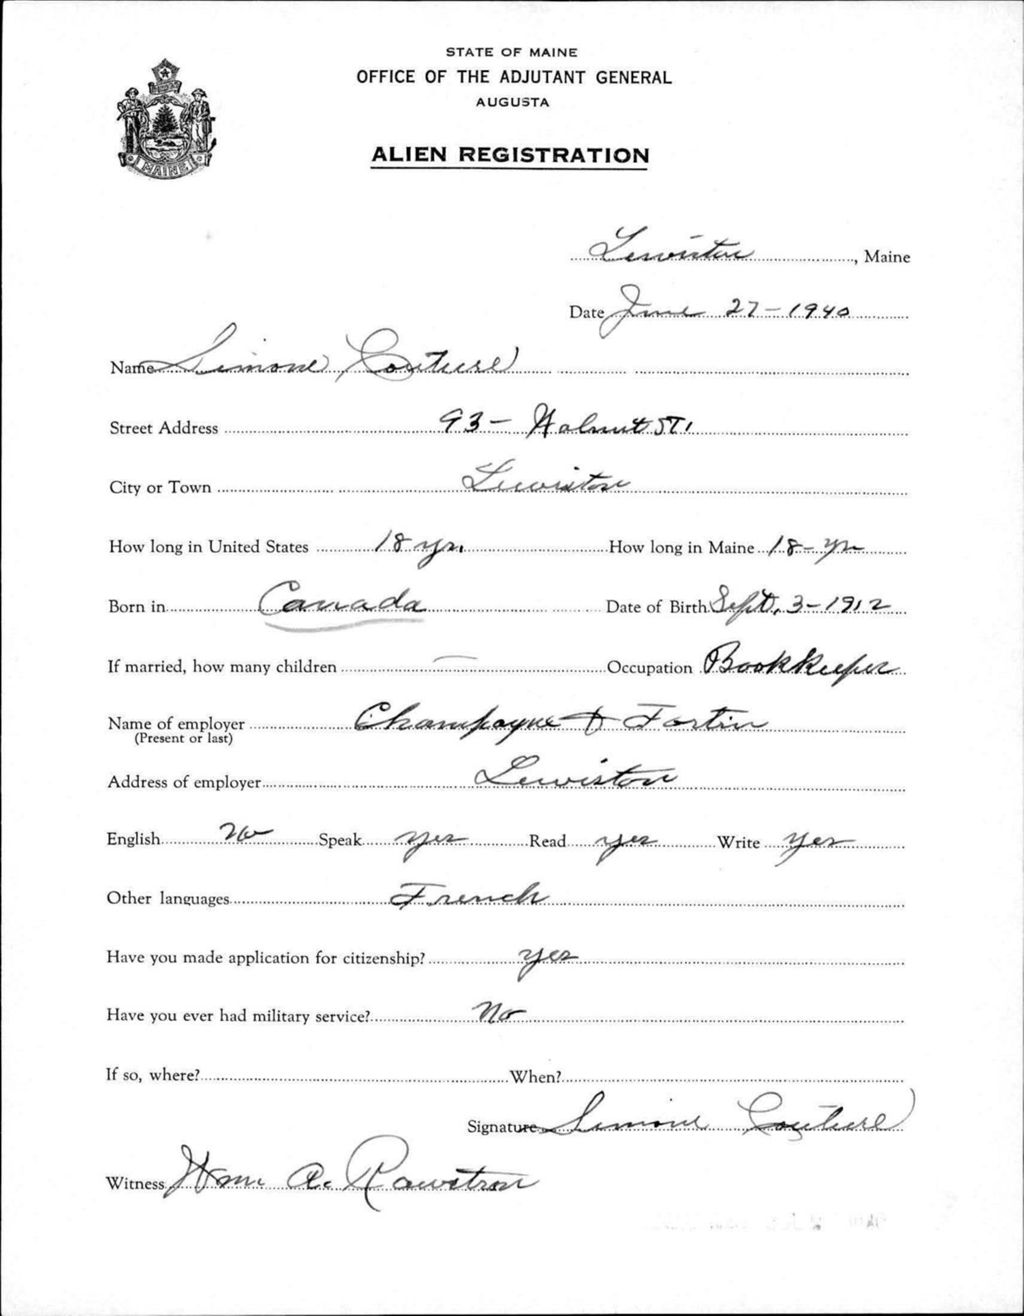 STATE OF MAINE
OFFICE OF THE ADJUTANT GENERAL
AUGUSTA
ALIEN REGISTRATION
MAINE
Lewiston, Maine
Date June 27-1940
Name Simone Couture
Street Address 93- Walnut ST.
City or Town Lewiston
How long in United States 18 yr. How long in Maine 18- yr
Born in Canada Date of Birth Sept. 3-1912
If married, how many children — Occupation Bookkeeper
Name of employer Champayne & Fortin
(Present or last)
Address of employer Lewiston
English No Speak yes Read yes Write yes
Other languages French
Have you made application for citizenship? yes
Have you ever had military service? No
If so, where? When?
Signature Simone Couture
Witness Wm. A. Rawstron